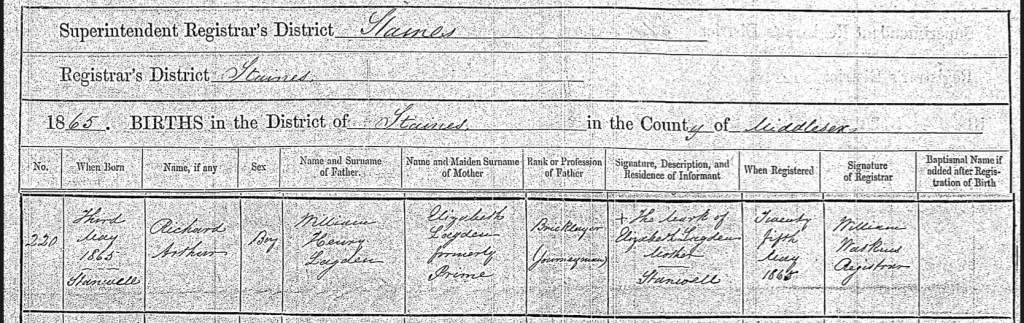 Superintendent Registrar's District Staines
Registrar's District Staines.
1865. BIRTHS in the District of Staines in the County of Middlesex
No.
When Born
Name, if any
Sex
Name and Surname
of Father.
Name and Maiden Surname
of Mother
Rank or Profession
of Father
Signature, Description, and
Residence of Informant
When Registered
Signature
of Registrar
Baptismal Name if
added after Regis-
tration of Birth
220
Third
May
1865
Stanwell
Richard
Arthur
Boy
William
Henry
Lagden
Elizabeth
Lagden
formerly
Prime
Bricklayer
(Journeyman)
+ The mark of
Elizabeth Lagden
Mother
Stanwell
Twenty
fifth
May
1865
William
Watkins
Registrar